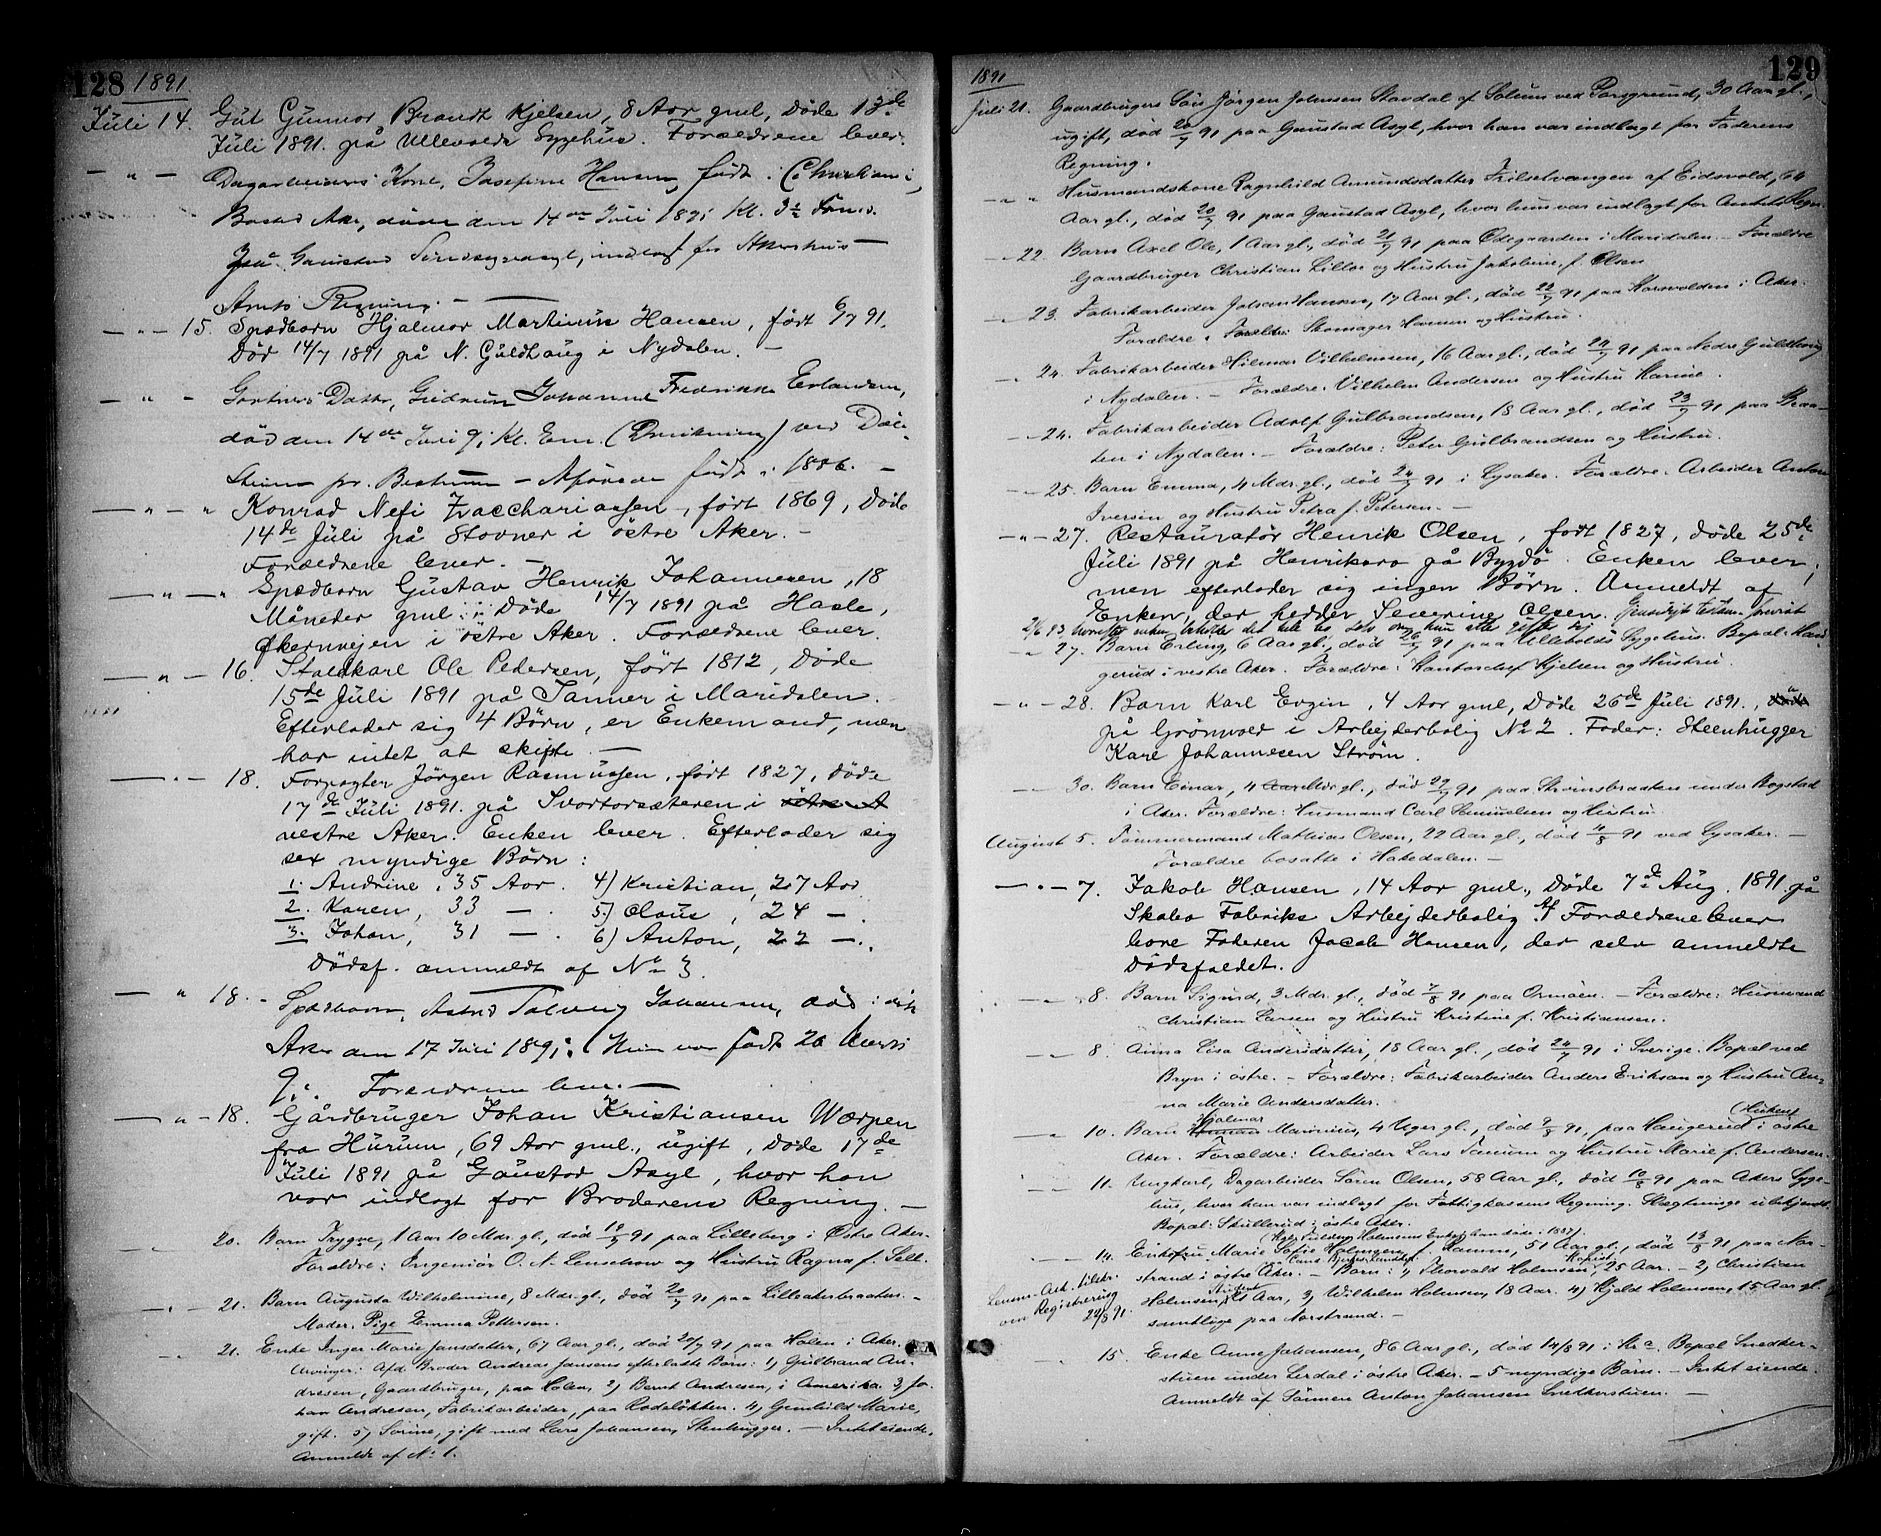 128 1891.
Juli 14. Gut Gunnar Brandt Kjelsen, 8 Aar gml, døde 13de
Juli 1891. på Ullevolds Sygehus. Forældrene lever.
— " — Dagarbeiders Kone, Josefine Hansen, født i Christiania,
Bosted Aker, døde den 14de Juli 1891 Kl. 3½ Form.
paa Gaustad Sindssygeasyl, indlagt for Akershus
Amts Regning. —
— " — 15. Spædbarn Hjalmar Martinius Hansen, født 6/7 91.
Død 14/7 1891 på N. Guldhaug i Nydalen. —
— " — Gartners Datter, Gudrun Johanne Fredrikke Erlandsen,
død den 14de Juli 91 Kl. Em. (Drukning) ved
pr. Bestum — født i 1886. —
— " — " Konrad Nefi Zacchariassen, født 1869, døde
14de Juli på Stovner i østre Aker. —
Forældrene lever. —
— " — " Spædbarn Gustav Henrik Johannesen, 18
Måneder gml. Døde 14/7 1891 på Hasle,
Økernvejen i østre Aker. Forældrene lever.
— " — 16. Staldkarl Ole Pedersen, født 1812, døde
15de Juli 1891 på Tanner i Maridalen.
Efterlader sig 4 Børn, er Enkemand, men
har intet at skifte. —
— " — 18. Forpagter Jörgen Rasmussen, født 1827, døde
17de Juli 1891. på Svartorsæteren i østre A
vestre Aker. Enken lever. Efterlader sig
sex myndige Børn:
1. Andrine, 35 Aar. 4) Kristian, 27 Aar
2. Karen, 33 — . 5) Claus, 24 — .
3. Johan, 31 — . 6) Anton, 22 — .
Dødsf. anmeldt af No 3.
— " 18. - Spædbarn, Astrid Solveig Johansen, død i østre
Aker den 17 Juli 1891. Hun var født 26 Marts
91. Forældrene lever. —
— " — 18. Gårdbruger Johan Kristiansen Wærpen
fra Hurum, 69 Aar gml., ugift, døde 17de
Juli 1891 på Gaustad Asyl, hvor han
var indlagt for Broderens Regning. —
— " — 20. Barn Trygve, 1 Aar 10 Mdr. gl., død 19/7 91 paa Lillsberg i Østre Aker.
Forældre: Ingeniør O. N. Lenschow og Hustru Ragna f. Sell.
— " — 21. Barn Augusta Wilhelmine, 8 Mdr. gl., død 20/7 91 paa Lilleakerbraaten. —
Moder. Pige Emma Pettersen.
— " — 21. Enke Inger Marie Jansdatter, 67 Aar gl., død 20/7 91 paa Holen i Aker.
Arvinger: Afd. Broder Andreas Jansens efterladte Børn: 1) Gulbrand An-
dresen, Gaardbruger, paa Holen, 2) Bernt Andresen, i Amerika. 3) Jo-
han Andresen, Fabrikarbeider, paa Rodeløkken. 4) Gunhild Marie,
gift. 5) Sorine, gift med Lars Johansen, Stenhugger. — Intet eiende.
Anmeldt af No 1.
129
1891
Juli 21. Gaardbrugers Søn Jörgen Johnsen Stavdal af Solum ved Porsgrund, 30 Aar gl.,
ugift, død 20/7 91 paa Gaustad Asyl, hvor han var indlagt for Faderens
Regning.
— " " Husmandskone Ragnhild Amundsdatter Trilsetvangen af Eidsvold, 64
Aar gl., død 20/7 91 paa Gaustad Asyl, hvor hun var indlagt for Amtets Regn.
— " 22. Barn Axel Ole, 1 Aar gl., død 21/7 91 paa Ødegaarden i Maridalen. — Forældre
Gaardbruger Christian Lilloe og Hustru Jakobine, f. Olsen
— " 23. Fabrikarbeider Johan Hansen, 17 Aar gl., død 22/7 91 paa Korsvolden i Aker.
Forældre: Forældre: Skomager Hansen og Hustru.
— " 24. Fabrikarbeider Hilmar Vilhelmsen, 16 Aar gl., død 24/7 91 paa Nedre Guldhaug
i Nydalen. — Forældre. Vilhelm Andersen og Hustru Karine.
— " 24. Fabrikarbeider Adolf Gulbrandsen, 18 Aar gl., død 23/7 91 paa Braa-
ten i Nydalen. — Forældre: Peter Gulbrandsen og Hustru.
— " 25. Barn Emma, 4 Mdr. gl., død 24/7 91 i Lysaker. Forældre: Arbeider Anton
Iversen og Hustru Petra f. Petersen. —
— " — 27. Restauratør Henrik Olsen, født 1827, døde 25de
Juli 1891 på Henriksro på Bygdø. Enken lever,
men efterlader sig ingen Børn. Anmeldt af
Enken, der hedder Severine Olsen.
— " 27. Barn Erling, 6 Aar gl., død 26/7 91 paa Ullevolds Sygehus. Bopæl:
gerud i vestre Aker. Forældre: Kontorchef Kjelsen og Hustru.
— " — 28. Barn Karl Evgen, 4 Aar gml, døde 26de Juli 1891.,
på Grønvold i Arbejderbolig No 2. Fader: Steenhugger
Karl Johannesen Strøm.
— " 30. Barn Einar, 4 Aar Mdr gl., død 29/7 91 paa Strömsbraaten under Bogstad
i Aker. Forældre: Husmand Carl Samuelsen og Hustru.
August 5. Tømmermand Mathias Olsen, 22 Aar gl., død 4/8 91 ved Lysaker. —
Forældre bosatte i Hakedalen. —
— " — 7. Jakob Hansen, 14 Aar gml., døde 7de Aug. 1891 på
Skabo Fabriks Arbejderbolig. Af Forældrene lever
bare Faderen Jacob Hansen, der selv anmeldte
Dødsfaldet.
— " 8. Barn Sigurd, 3 Mdr. gl., død 7/8 91 paa Ormøen. — Forældre: Husmand
Christian Larsen og Hustru Kristine f. Kristiansen.
— " 8. Anna Lisa Andersdatter, 18 Aar gl., død 24/7 91 i Sverige. Bopæl ved
Bryn i østre. — Forældre: Fabrikarbeider Anders Erikson og Hustru An-
na Marie Andersdatter.
— " 10. Barn Hjalmar Marinius, 4 Uger gl., død 9/8 91, paa Haugerud i østre
Aker. Forældre: Arbeider Lars Tanum og Hustru Marie f. Andersen.
— " 11. Ungkarl, Dagarbeider Søren Olsen, 58 Aar gl., død 10/8 91 paa Akers Syge-
hus, hvor han var indlagt for Fattigkassens Regning. Slægtninge ubekjendt.
Bopæl: Skullerud i østre Aker.
— 14. Enkefru Marie Sofie Holmsen, f. Ramm, 51 Aar gl., død 13/8 91 paa Nor-
strand i østre Aker. — Børn: 1) Thorvald Holmsen, 25 Aar. — 2) Christian
Holmsen, 21 Aar, 3) Wilhelm Holmsen, 18 Aar. 4) Hjald Holmsen, 15 Aar gl.
samtlige paa Norstrand. —
om Registrering
22/8 91.
— 15. Enke Anne Johansen, 86 Aar gl., død 14/8 91 i Kr.a. Bopæl Snedker-
stuen under Lerdal i østre Aker. — 5 myndige Børn. — Intet eiende.
Anmeldt af Sønnen Anton Johansen Snedkerstuen. —